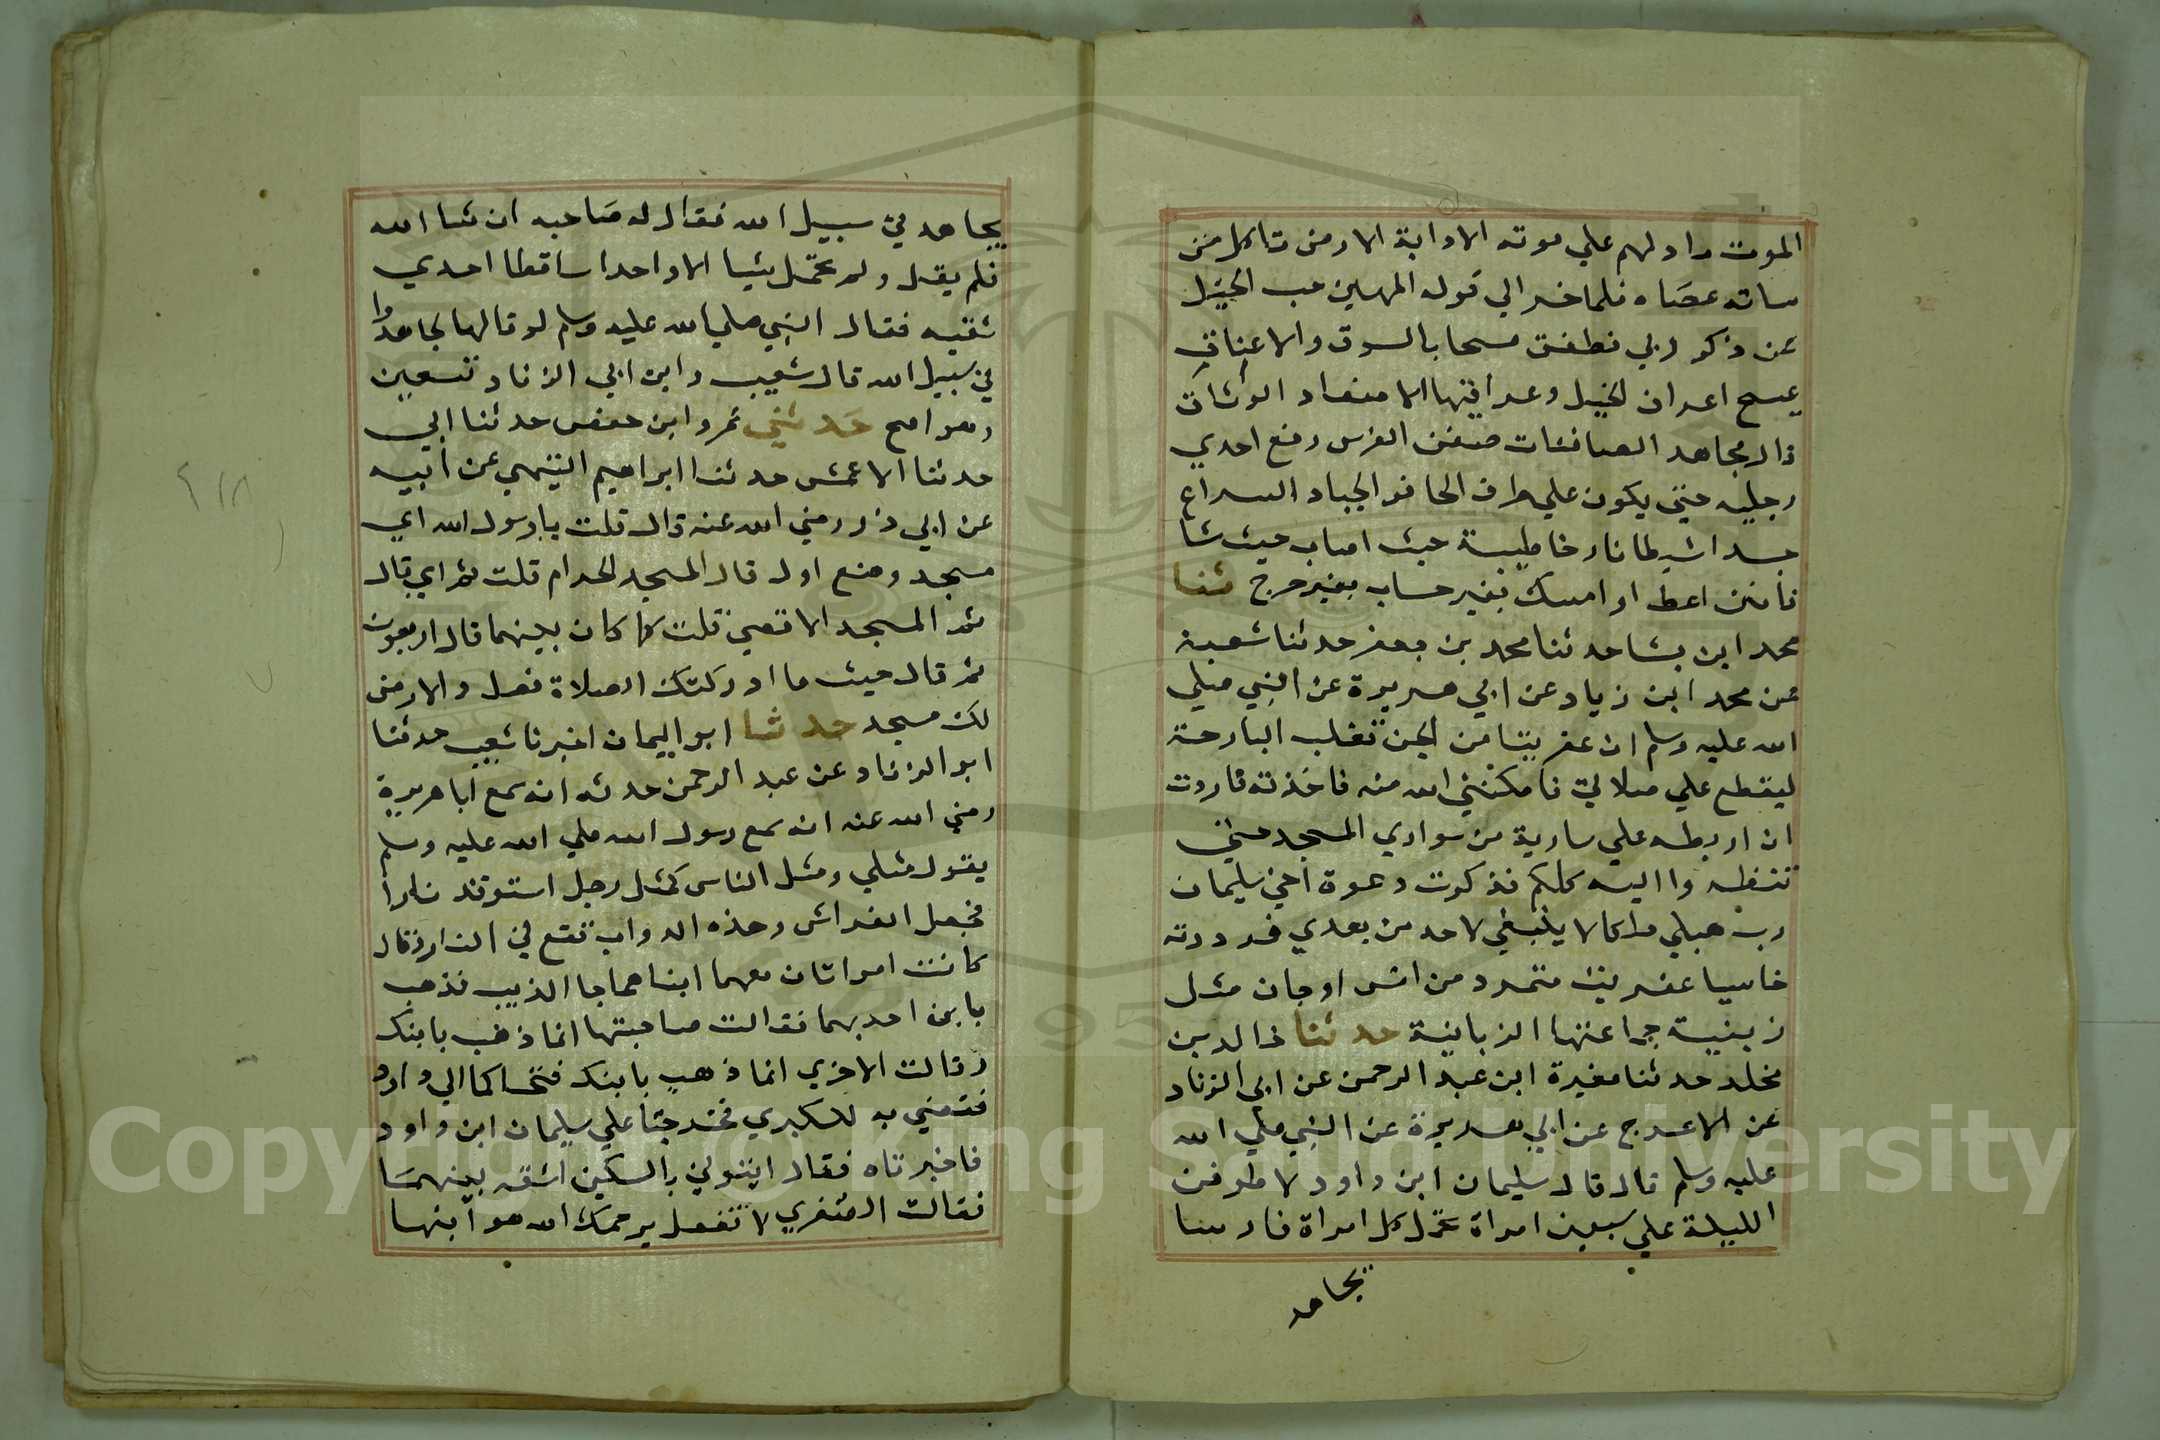 الموت ما دلهم علي موته الا دابة الارض تاكل من
ساته عصاه فلما خر الي قوله المهين حب الخيل
عن ذكر ربي فطفق مسحا بالسوق والاعناق
يمسح اعراف الخيل وعراقيبها الاصفاد الوثاق
قال مجاهد الصافنات صفن الفرس رفع احدي
رجليه حتي يكون علي طرف الحافر الجياد السراع
جسدا شيطانا رخا طيبة حيث اصاب حيث شا
فامنن اعط او امسك بغير حساب بغير حرج ثنا
محمد ابن بشا حدثنا محمد بن جعفر حدثنا شعبة
عن محمد ابن زياد عن ابي هريرة عن النبي صلي
الله عليه وسلم ان عفريتا من الجن تفلب البارحة
ليقطع علي صلاتي فامكنني الله منه فاخذته فاردت
ان اربطه علي سارية من سواري المسجد حتي
تنظر وا اليه كلكم فذكرت دعوة اخي سليمان
رب هبلي ملكا لا ينبغي لاحد من بعدي فرددته
خاسيا عفريت متمرد من انس او جان مثل
زبنية جماعتها الزبانية حدثنا خالد بن
مخلد حدثنا مغيرة ابن عبد الرحمن عن ابي الزناد
عن الاعرج عن ابي هريرة عن النبي صلي الله
عليه وسلم قال قال سليمان ابن داود لاطوفن
الليلة علي سبعين امراة تحمل كل امراة فارسا
يجاهد
يجاهد في سبيل الله فقال له صاحبه ان شا الله
فلم يقل ولم تحمل شيا الا واحدا ساقطا احدي
شقيه فقال النبي صلي الله عليه وسلم لو قالها لجاهدوا
في سبيل الله قال شعيب وابن ابي الزناد تسعين
وهو اصح حدثني عمرو ابن حفص حدثنا ابي
حدثنا الاعمش حدثنا ابراهيم التيمي عن ابيه
عن ابي ذر رضي الله عنه قال قلت يا رسول الله اي
مسجد وضع اول قال المسجد الحرام قلت ثم اي قال
ثم المسجد الاقصي قلت كم كان بينهما قال اربعون
ثم قال حيث ما ادركتك الصلاة فصل والارض
لك مسجد حدثنا ابو اليمان اخبرنا شعيب حدثنا
ابو الزناد عن عبد الرحمن حدثه انه سمع ابا هريرة
رضي الله عنه انه سمع رسول الله صلي الله عليه وسلم
يقول مثلي ومثل الناس كمثل رجل استوقد نارا
فجعل الفراش وهذه الدواب تقع في النار وقال
كانت امراتان معهما ابناهما جا الذيب فذهب
بابن احديهما فقالت صاحبتها انما ذهب بابنك
وقالت الاخري انما ذهب بابنك فتحاكما الي داود
فقضي به للكبري فخرجتا علي سليمان ابن داود
فاخبرتاه فقال ايتوني بالسكين اشقه بينهما
فقالت الصغري لا تفعل يرحمك الله هو ابنها
٢١٨
1957
Copyright © King Saud University